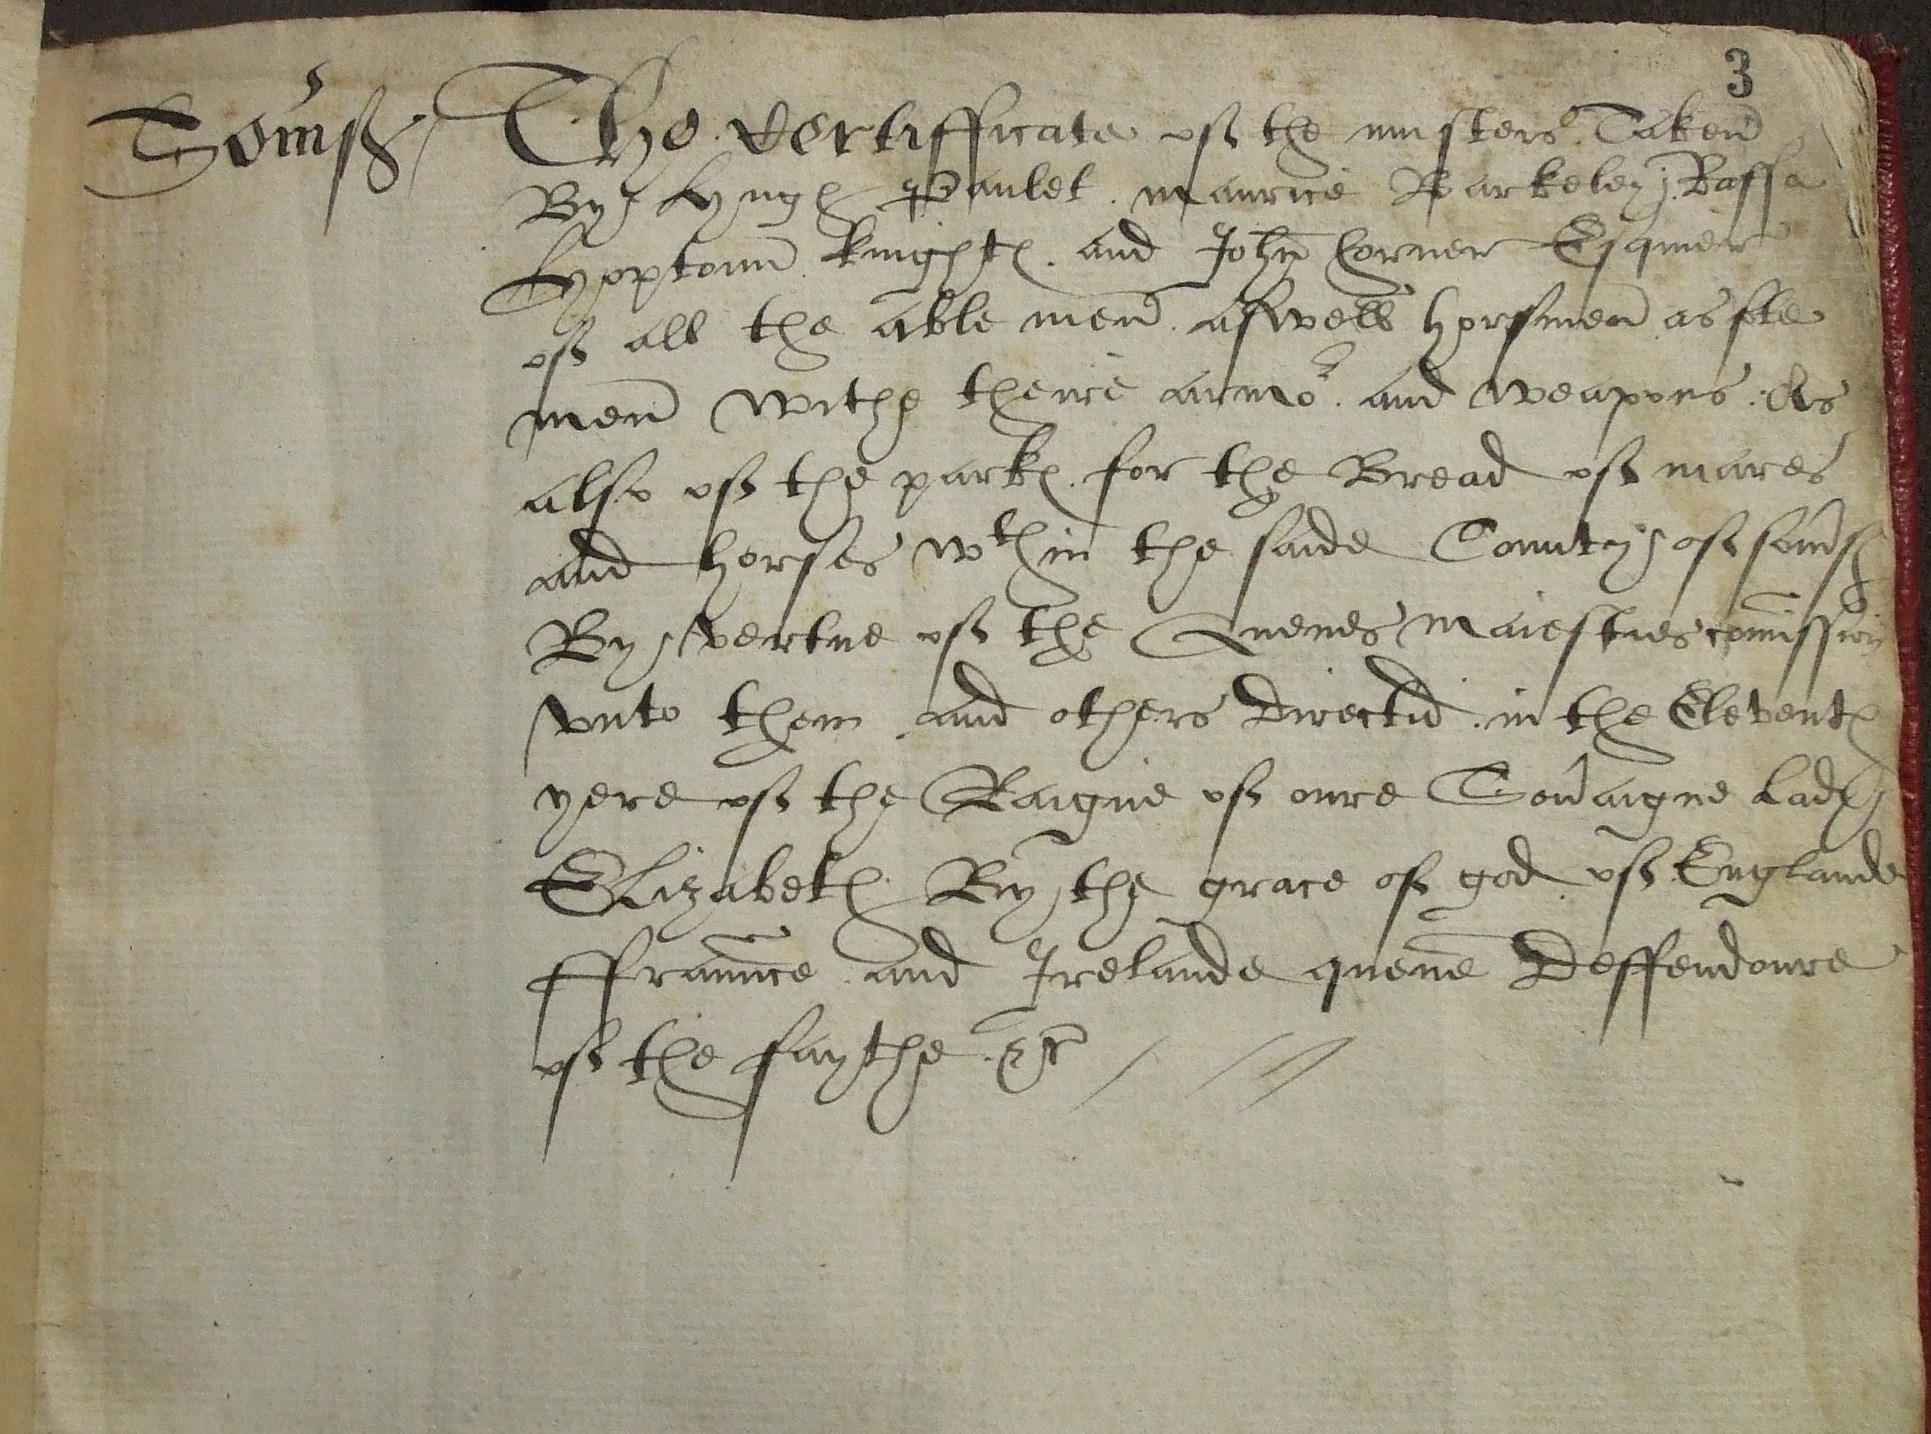 3
Som̃s
The Certifficate of the musters Taken
By Hugh Paulet . Maurice Barkeley . Raffe
Hopptoun knightes . and John horner Esquier
of all the able men . aswell horsmen as fote
men withe theire armor . and weapons . As
also of the parkes . for the Bread of mares
and horses wth in the saide County of som̃s
By vertue of the Quenes Maiesties com̃ission
vnto them and others directid . in the Eleventh
yere of the Raigne of oure Sou'aigne Lady
Elizabeth By the grace of god of Englande
ffraunce . and Irelande quene deffendoure
of the faythe . &c